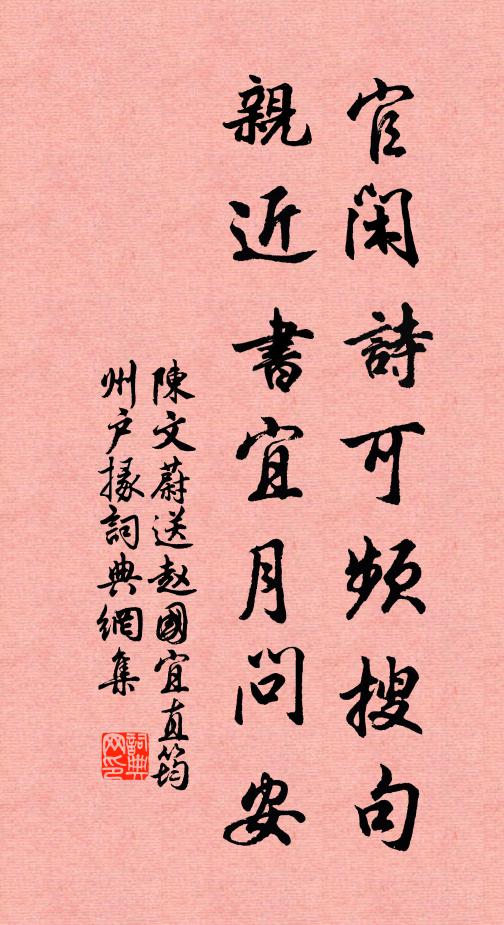 官閑詩可頻搜句
親近書宜月問安
陳文蔚送赵國宜直筠
州户掾詞典網集
詞典網印